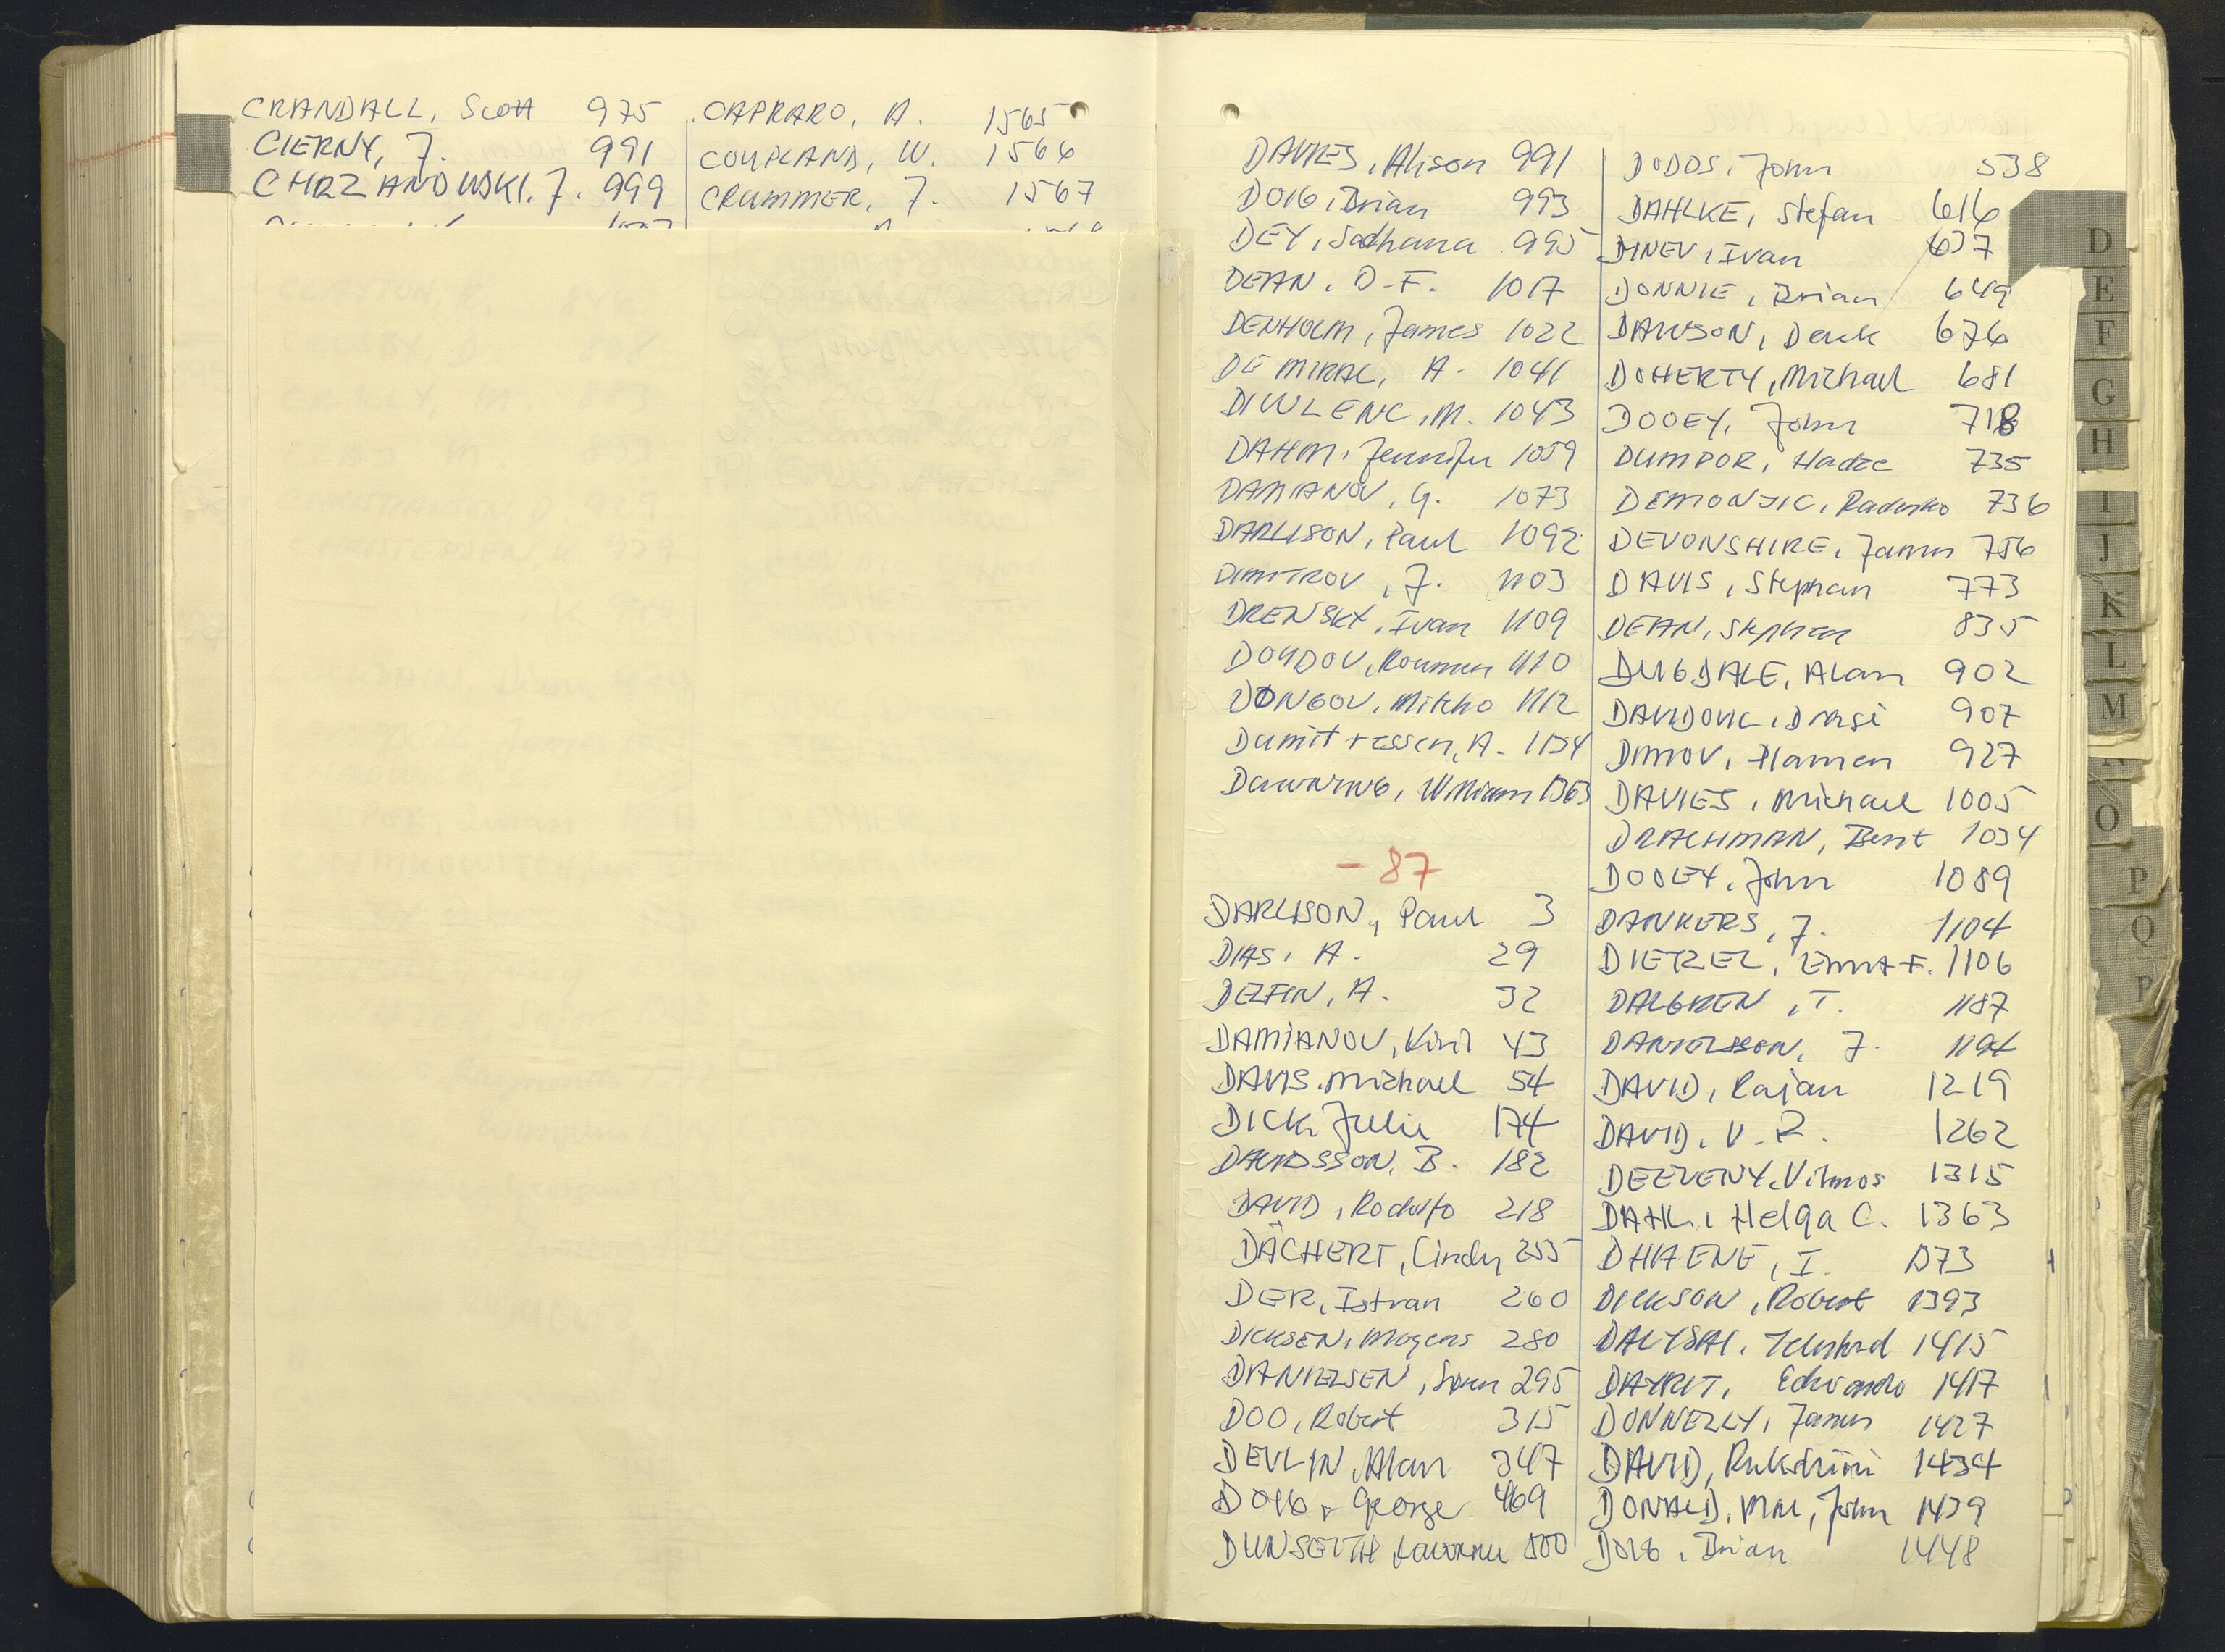 CRANDALL, Scott 975
CIERNY, J. 991
CHRZANOWSKI, J. 999
CAPRARO, A. 1565
COUPLAND, W. 1566
CRUMMER, J. 1567
DAVIES, Alison 991
DOIG, Brian 993
DEY, Sadhana 995
DEAN, D-F. 1017
DENHOLM, James 1022
DE MIRAL, A. 1041
DIWLENC, M. 1043
DAHM, Jennifer 1059
DAMIANOV, G. 1073
DARLISON, Paul 1092
DIMITROV, J. 1103
DRENSKY, Ivan 1109
DOUDOV, Roumen 1110
DONGOV, Mitko 1112
Dumitrescu, A.
DOWNING, William 1363
- 87
DARLISON, Paul 3
DIAS, A. 29
DELFIN, A. 32
DAMIANOV, Kiril 43
DAVIS, Michael 54
DICK, Julie 174
DAVIDSSON, B. 182
DAVID, Rodolfo 218
DÄCHERT, Cindy 255
DER, Istvan 260
DICKSEN, Mogens 280
DANIELSEN, 295
DOO, Robert 315
DEVLIN, Alan 347
DOIG, George 469
DUNSEITH, 500
DODDS, John 538
DAHLKE, Stefan 616
DINEV, Ivan 637
DONNIE, Brian 649
DAWSON, Derek 676
DOHERTY, Michael 681
DOOEY, John 718
DUMPOR, Hadze 735
DEMONJIC, Radenko 736
DEVONSHIRE, James 756
DAVIS, Stephan 773
DEAN, Stephen 835
DUGDALE, Alan 902
DAVIDOVIC, Dragi 907
DIMOV, Plamen 927
DAVIES, Michael 1005
DRACHMAN, Bent 1034
DOOLEY, John 1089
DANKERS, J. 1104
DIETZEL, Ernst F. 1106
DALGREN, T. 1187
DANIELSSON, J. 1194
DAVID, Rajan 1219
DAVID, V. R. 1262
DEZVENY, Vilmos 1315
DAHL, Helga C. 1363
DHAENE, I. 1373
DICKSON, Robert 1393
DALYSAY, 1415
DAYRIT, Edvardo 1417
DONNELLY, James 1427
DAVID, Rukshimi 1434
DONALD, Mac, John 1439
DOIG, Brian 1448
D
E
F
G
H
I
J
K
L
M
O
P
Q